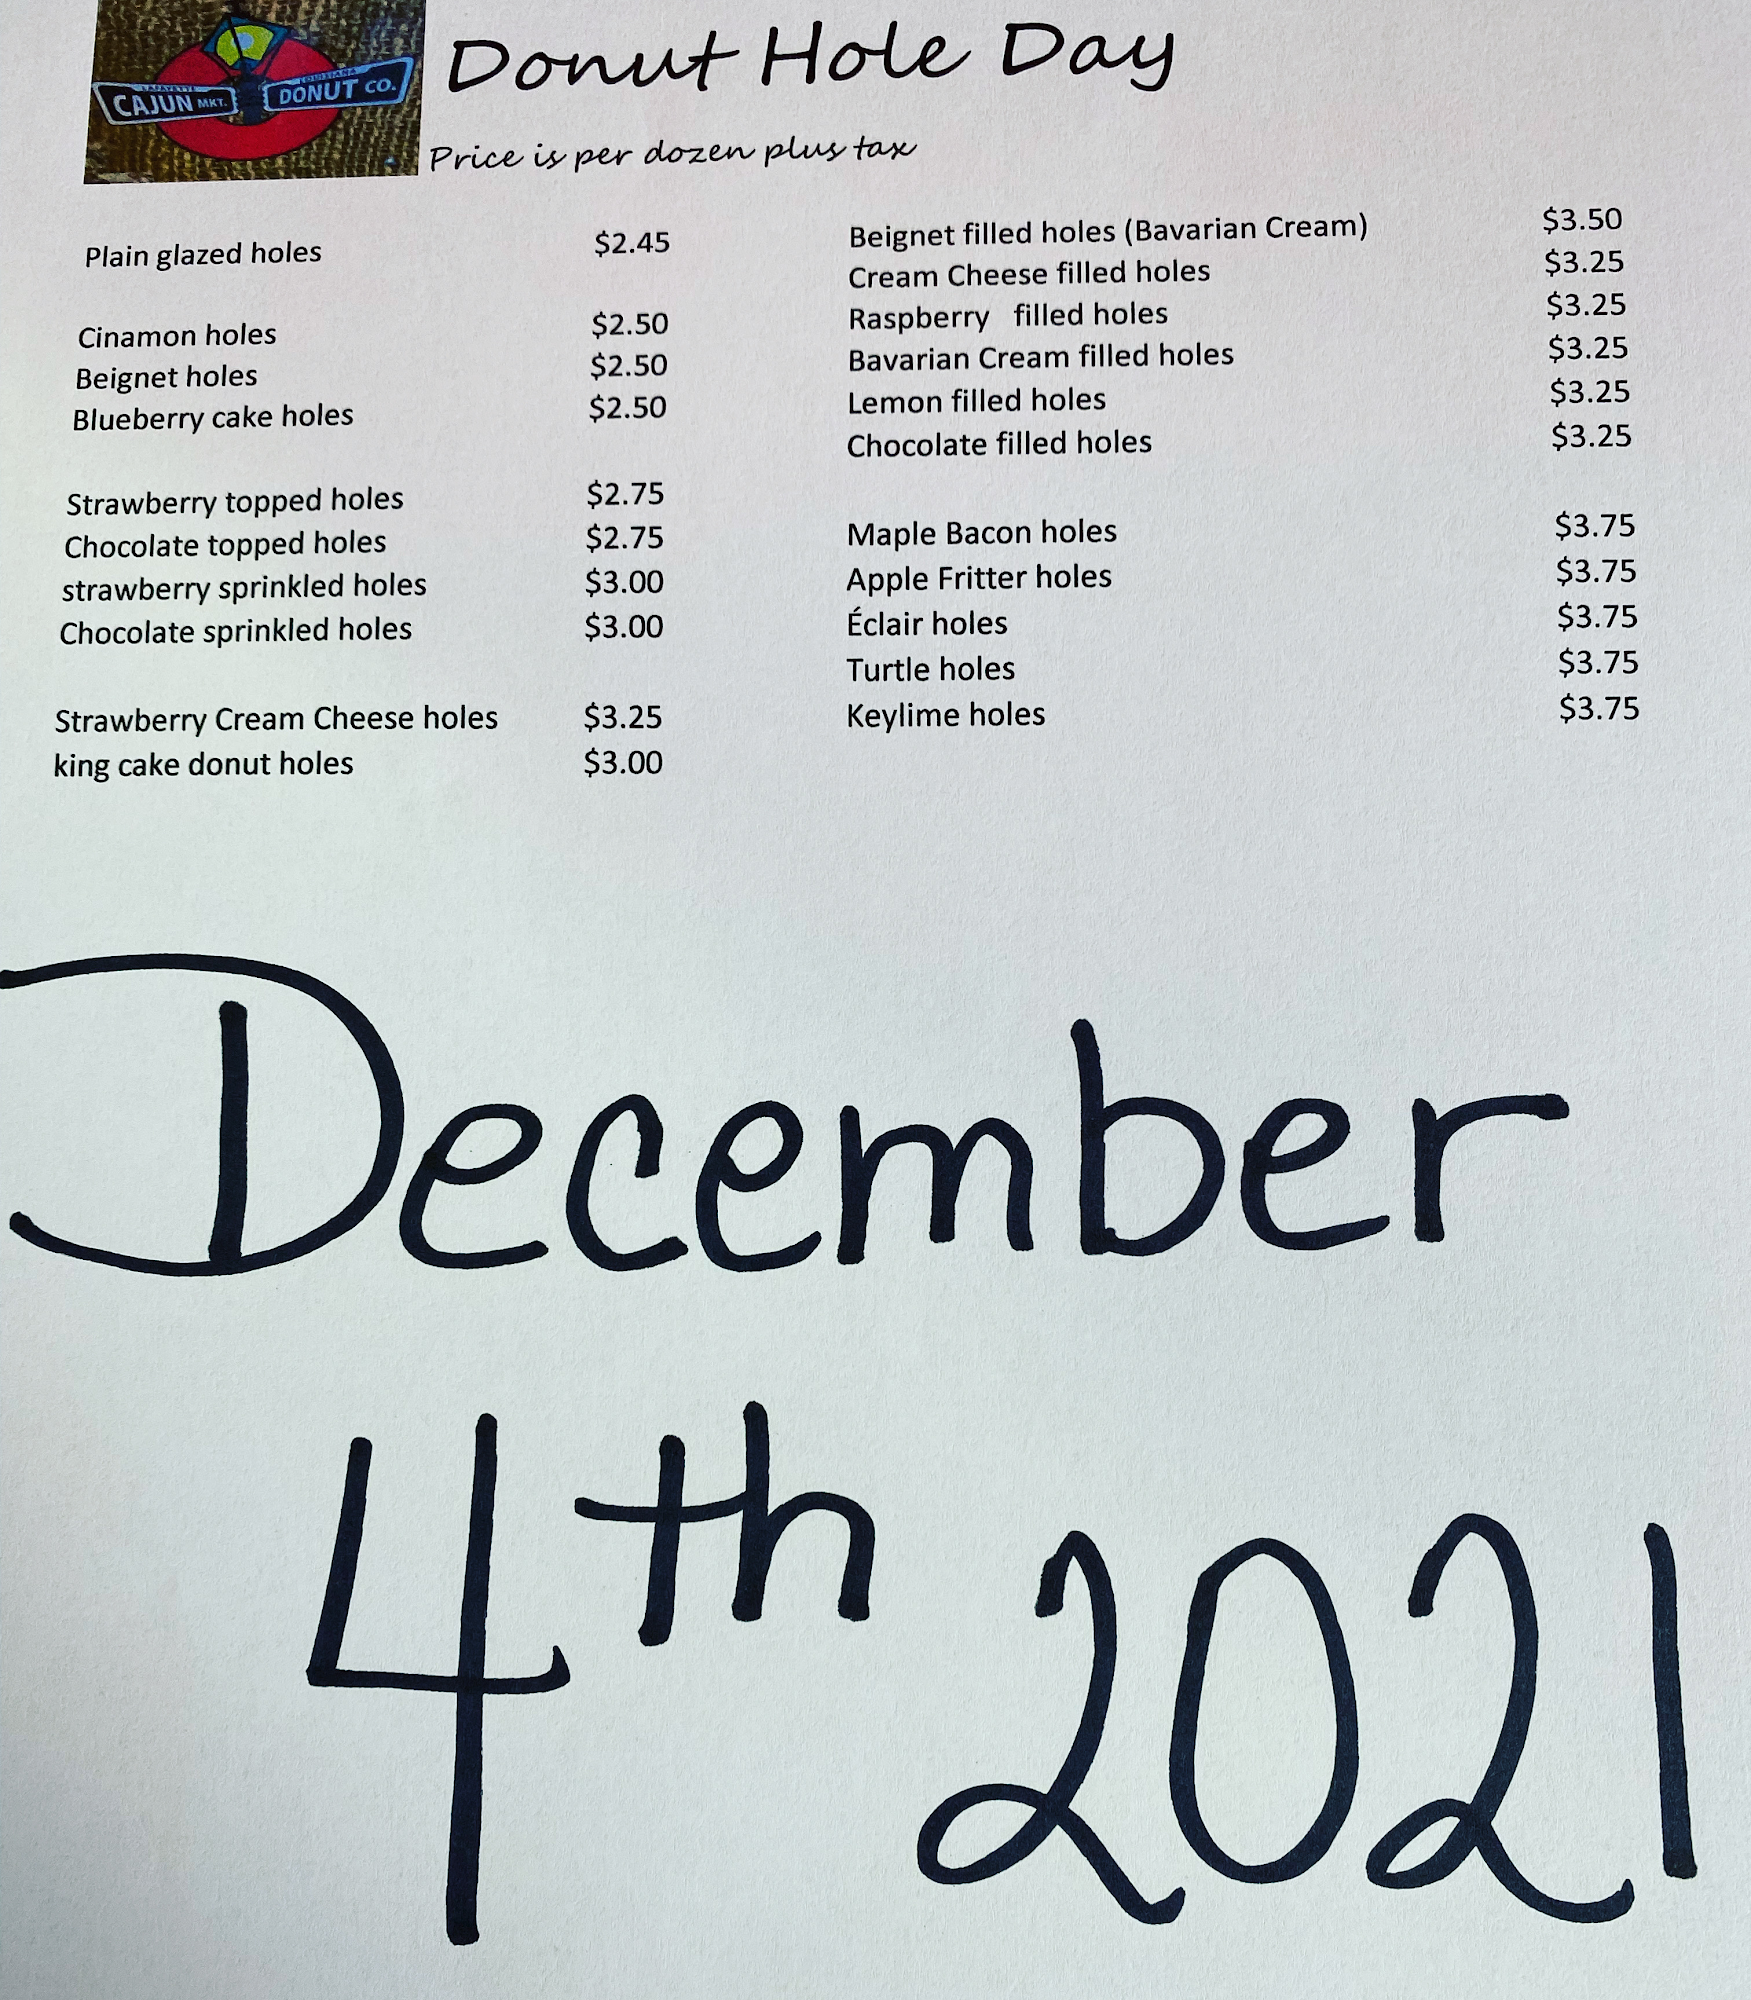 LAFAYETTE LOUISIANA
CAJUN MKT. DONUT CO.
Donut Hole Day
Price is per dozen plus tax
Plain glazed holes $2.45
Cinamon holes $2.50
Beignet holes $2.50
Blueberry cake holes $2.50
Strawberry topped holes $2.75
Chocolate topped holes $2.75
strawberry sprinkled holes $3.00
Chocolate sprinkled holes $3.00
Strawberry Cream Cheese holes $3.25
king cake donut holes $3.00
Beignet filled holes (Bavarian Cream) $3.50
Cream Cheese filled holes $3.25
Raspberry filled holes $3.25
Bavarian Cream filled holes $3.25
Lemon filled holes $3.25
Chocolate filled holes $3.25
Maple Bacon holes $3.75
Apple Fritter holes $3.75
Éclair holes $3.75
Turtle holes $3.75
Keylime holes $3.75
December
4th 2021